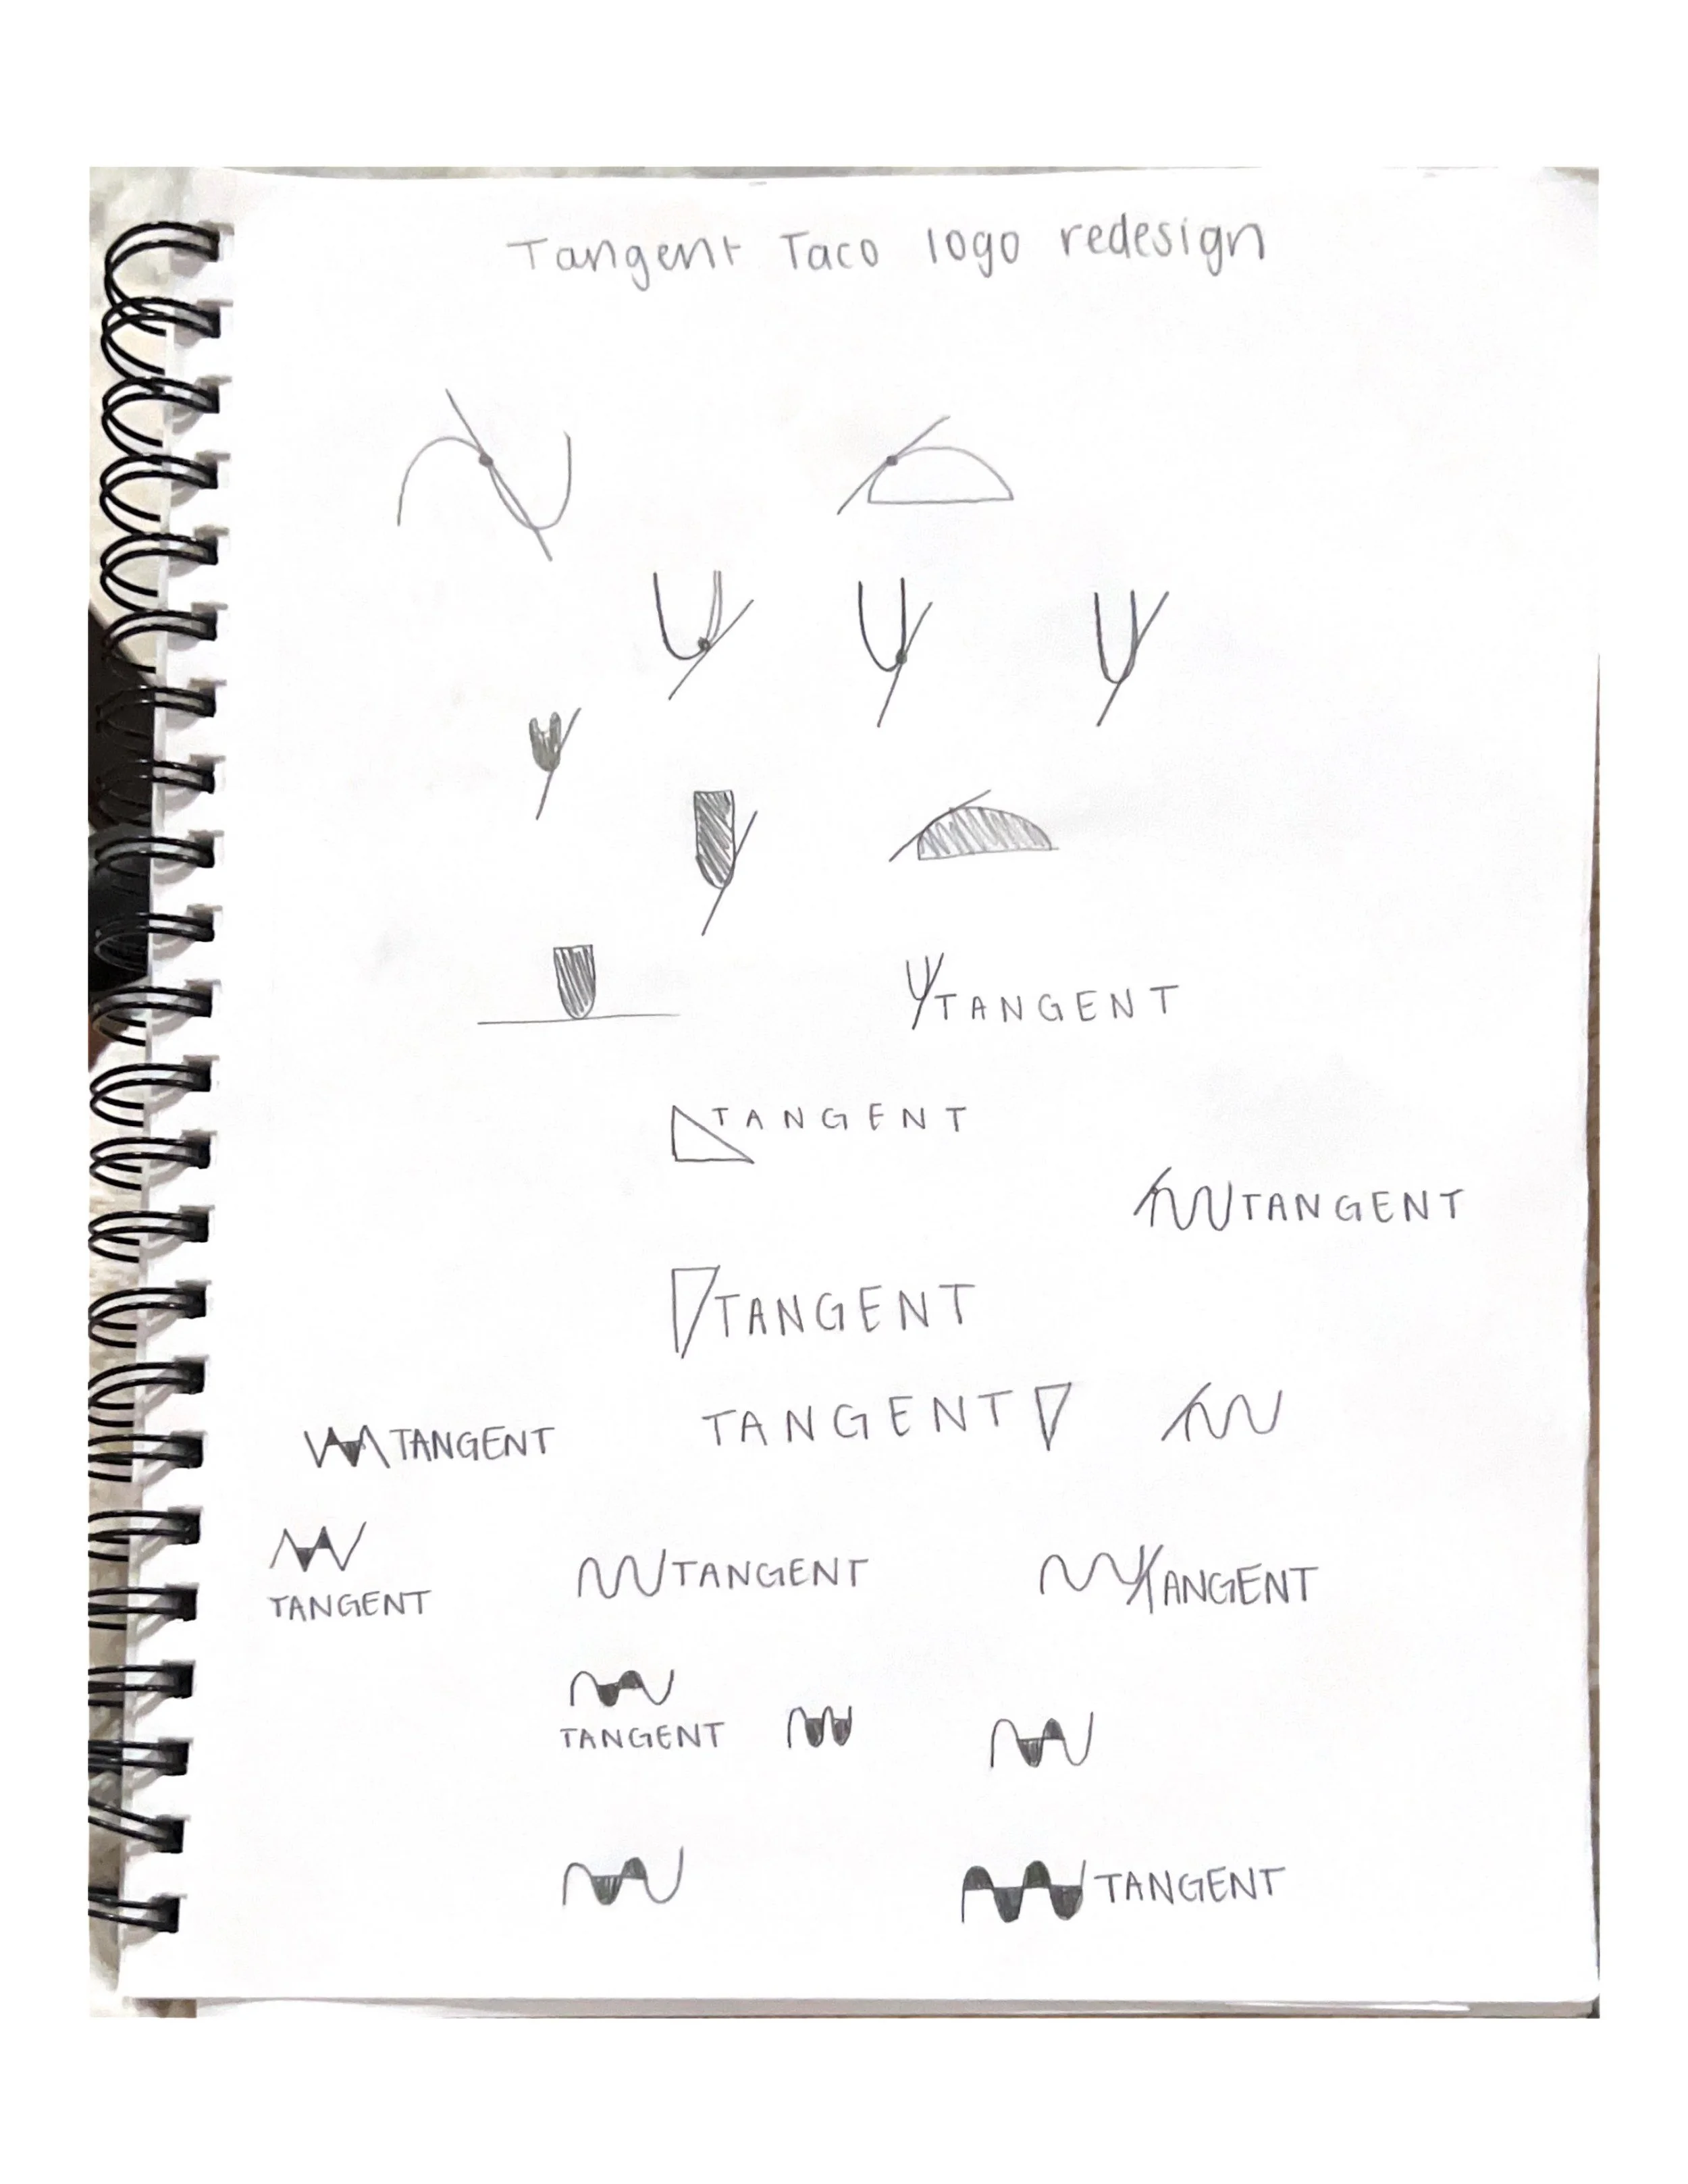 Tangent Taco logo redesign
TANGENT
TANGENT
TANGENT
TANGENT
TANGENT
TANGENT
TANGENT
TANGENT
TANGENT
TANGENT
TANGENT
TANGENT